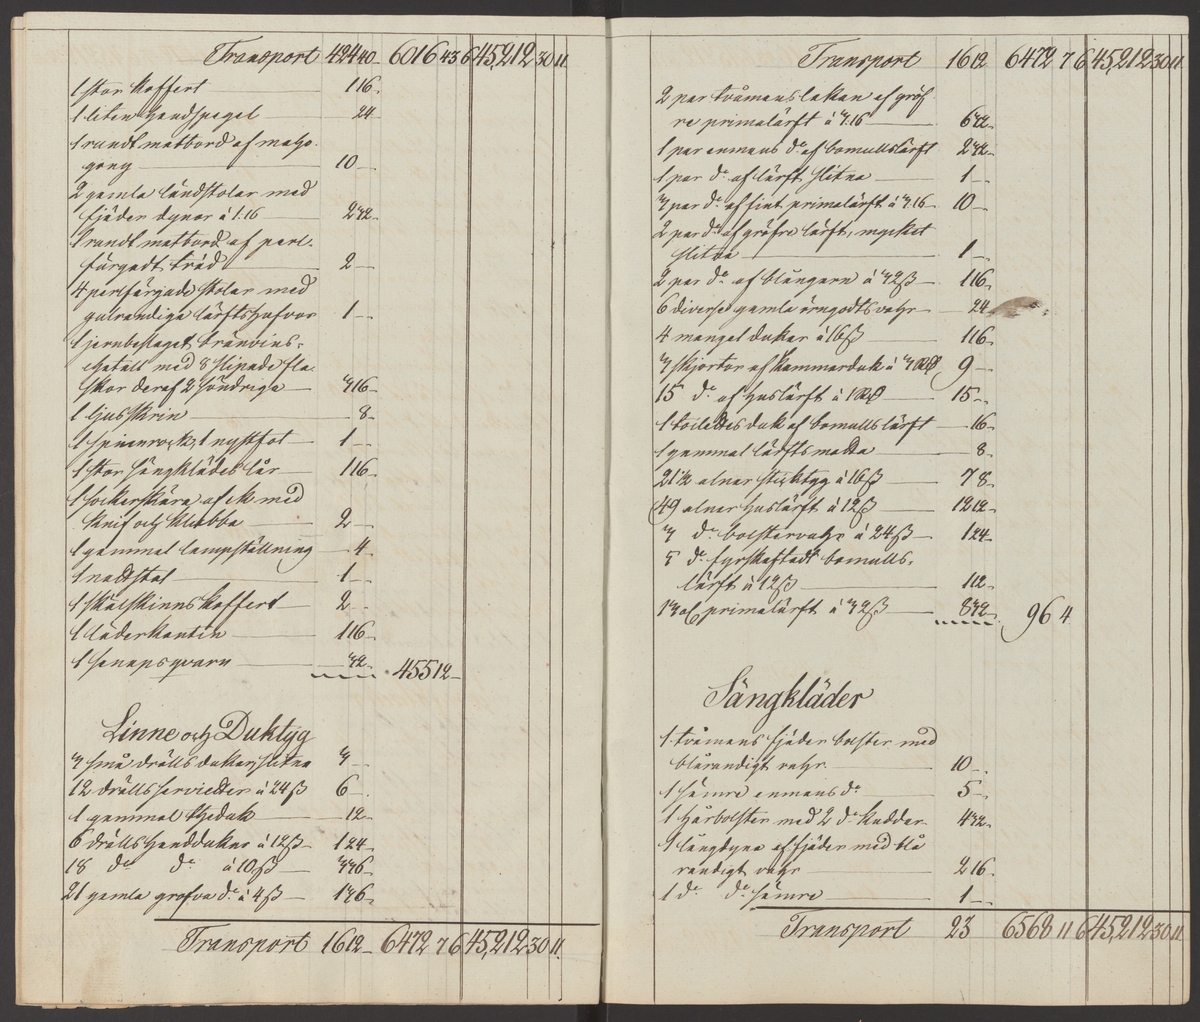 Transport 424 40 6016 43 6 45,212 30 11
1 stor koffert 1 16
1 liten handspegel 24
1 rundt matbord af maho-
gony 10
2 gamla länstolar med
fjäder dynor á 1.16 2 32
1 rundt matbord af perl-
färgadt träd 2
4 perlfärgade stolar med
gulrandiga lärftshufvor 1
1 jernbeslaget bränvins-
schatull med 8 slipade fla-
skor deraf 2 söndriga 3 16
1 ljusskrin 8
1 spinnrock, 1 nystfot 1
1 stor sängklädes lår 1 16
1 sockerskära af ek med
knif och klubba 2
1 gammal lampställning 4
1 nattstol 1
1 skälskinns koffert 2
1 läderkantin 1 16
1 senapsqvarn 32 455 12
Linne och Duktyg
3 små drälls dukar slitna 3
12 drälls servietter á 24 ß 6
1 gammal theduk 12
6 drälls handdukar á 12 ß 1 24
18 do do á 10 ß 3 36
21 gamla grofva do á 4 ß 1 36
Transport 16 12 6472 7 6 45,212 30 11
Transport 16 12 6472 7 6 45,212 30 11
2 par tvåmans lakan af gröf-
re primalärft á 3.16 6 32
1 par enmans do af bomullslärft 2 32
1 par do af lärft slitna 1
3 par do af fint primalärft á 3.16 10
2 par do af gröfre lärft, mycket
slitna 1
2 par do af blångarn á 32 ß 1 16
6 diverse gamla örngottsvahr 24
4 mangel dukar á 16 ß 1 16
3 skjortor af kammarduk á 3 RD 9
15 do af huslärft á 1 RD 15
1 toilettes duk af bomullslärft 16
1 gammal lärftsmatta 8
21½ alnar sticktyg á 16 ß 7 8
49 alnar huslärft á 12 ß 12 12
3 do bolstervahr á 24 ß 1 24
5 do fyrskaftadt bomulls-
lärft á 12 ß 1 12
13 al primalärft á 32 ß 8 32 96 4
Sängkläder
1 tvåmans fjäder bolster med
blårandigt vahr 10
1 sämre enmans do 5
1 hårbolster med 2 do kuddar 4 32
1 långdyna af fjäder med blå
randigt vahr 2 16
1 do do sämre 1
Transport 23 6568 11 6 45,212 30 11